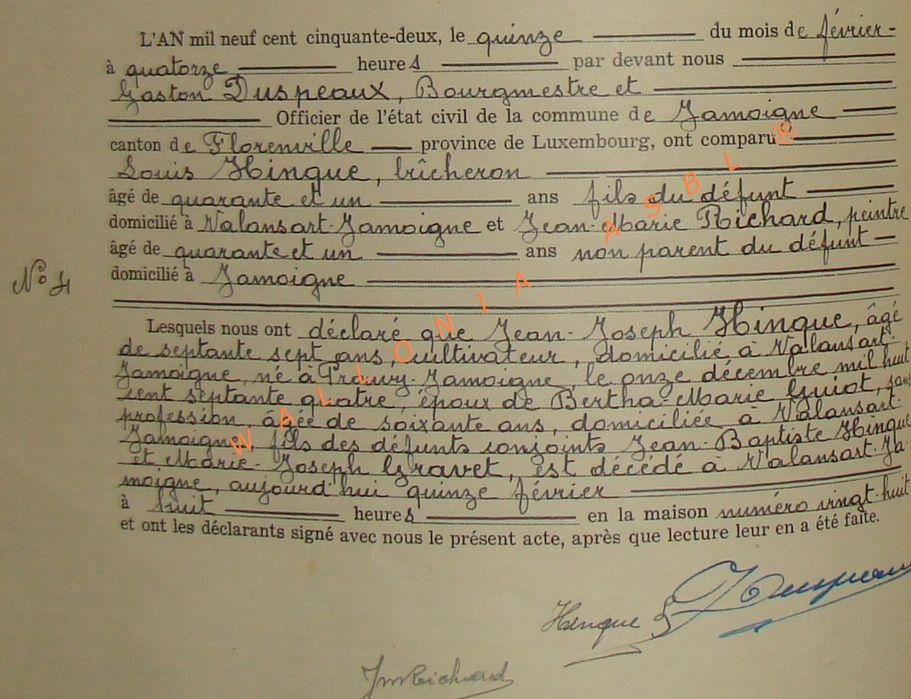 L'AN mil neuf cent cinquante-deux, le quinze du mois de février
à quatorze heures par devant nous
Gaston Duspeaux, Bourgmestre et
Officier de l'état civil de la commune de Jamoigne
canton de Florenville province de Luxembourg, ont comparu
Louis Hinque, bûcheron
âgé de quarante et un ans fils du défunt
domicilié à Valansart-Jamoigne et Jean-Marie Richard, peintre
âgé de quarante et un ans non parent du défunt
N° 4
domicilié à Jamoigne
Lesquels nous ont déclaré que Jean-Joseph Hinque, âgé
de septante sept ans, cultivateur, domicilié à Valansart-
Jamoigne, né à Prouvy-Jamoigne, le onze décembre mil huit
cent septante quatre, époux de Bertha-Marie Guiot, sans
profession, âgée de soixante ans, domiciliée à Valansart-
Jamoigne, fils des défunts conjoints Jean-Baptiste Hinque
et Marie-Joseph Gravet, est décédé à Valansart-Ja-
moigne, aujourd'hui quinze février
à huit heures en la maison numéro vingt-huit
et ont les déclarants signé avec nous le présent acte, après que lecture leur en a été faite.
Hinque L Duspeaux
JmRichard
WALLONIA ASBL